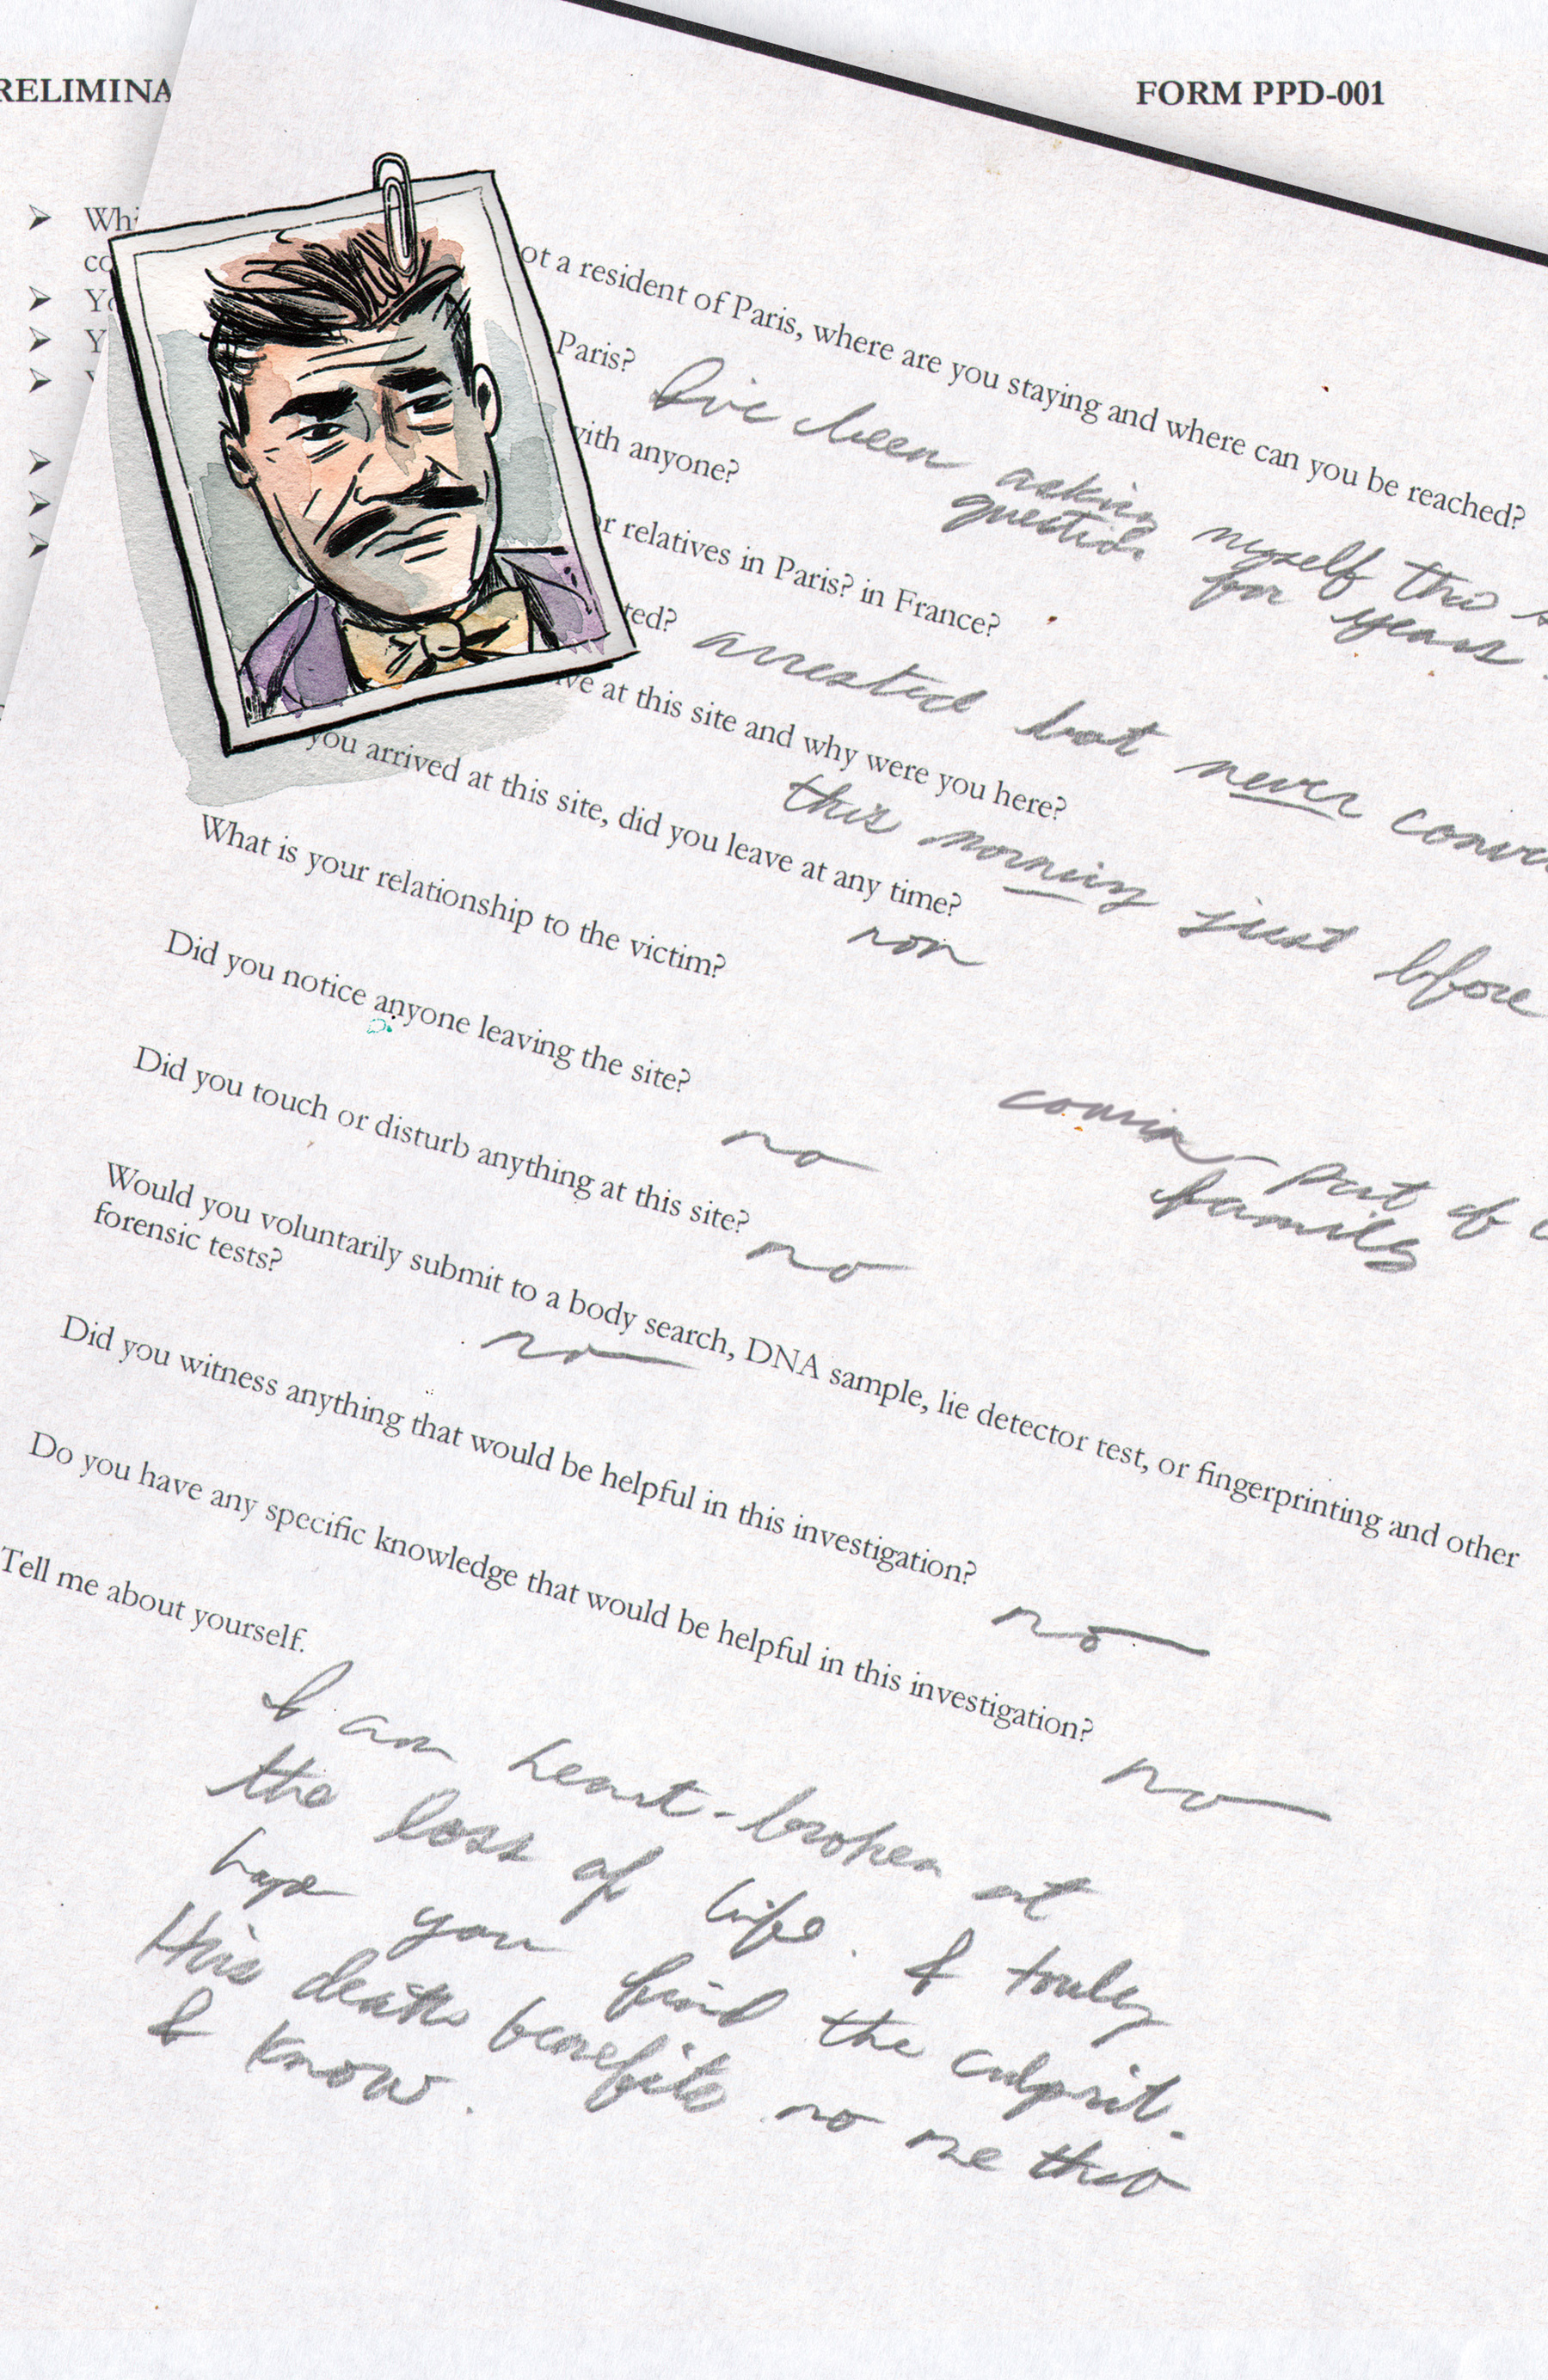 RELIMINA
FORM PPD-001
Whi
co
Yo
Y
ot a resident of Paris, where are you staying and where can you be reached?
Paris?
I've been asking myself this s
question for years.
with anyone?
or relatives in Paris? in France?
ted?
arrested but never conv
ive at this site and why were you here?
this morning just bfore
you arrived at this site, did you leave at any time?
non
What is your relationship to the victim?
cousin - part of
family
Did you notice anyone leaving the site?
no
Did you touch or disturb anything at this site?
no
Would you voluntarily submit to a body search, DNA sample, lie detector test, or fingerprinting and other
forensic tests?
no
Did you witness anything that would be helpful in this investigation?
no
Do you have any specific knowledge that would be helpful in this investigation?
no
Tell me about yourself.
I am heart-broken at
the loss of life. I truly
hope you find the culprit.
This death benefits no one tho
I know.